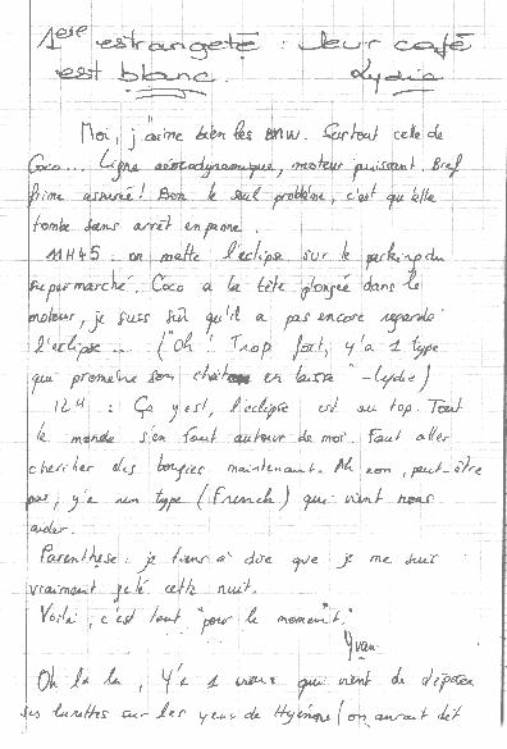 1ere estrangeté : leur café
est blanc. Lydia
Moi, j'aime bien les BMW. Surtout celle de
Coco... Ligne aérodynamique, moteur puissant. Bref
frime assurée! Bon le seul problème, c'est qu'elle
tombe sans arrêt en panne.
11H45 : on matte l'eclipse sur le parking du
supermarché. Coco a la tête plongée dans le
moteur, je suis sûr qu'il a pas encore regardé
l'eclipse... ("Oh! Trop fort, y'a 1 type
qui promène son en laisse" - Lydie)
12H : Ça y est, l'eclipse est au top. Tout
le monde s'en fout autour de moi. Faut aller
chercher des bougies maintenant. Ah non, peut-être
pas, y'a un type (French) qui vient nous
aider.
Parenthèse : je tiens à dire que je me suis
vraiment gelé cette nuit.
Voilà, c'est tout "pour le moment".
Yvan
Oh la la, Y'a 1 qui vient de déposer
ses lunettes sur les yeux de (on aurait dit